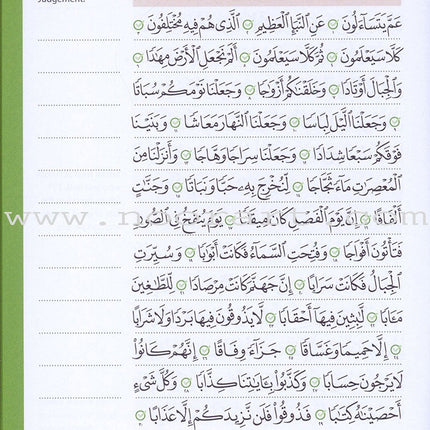 Judgement.
عَمَّ يَتَسَآءَلُونَ ۝ عَنِ ٱلنَّبَإِ ٱلْعَظِيمِ ۝ ٱلَّذِى هُمْ فِيهِ مُخْتَلِفُونَ ۝
كَلَّا سَيَعْلَمُونَ ۝ ثُمَّ كَلَّا سَيَعْلَمُونَ ۝ أَلَمْ نَجْعَلِ ٱلْأَرْضَ مِهَٰدًا ۝
وَٱلْجِبَالَ أَوْتَادًا ۝ وَخَلَقْنَٰكُمْ أَزْوَٰجًا ۝ وَجَعَلْنَا نَوْمَكُمْ سُبَاتًا
۝ وَجَعَلْنَا ٱلَّيْلَ لِبَاسًا ۝ وَجَعَلْنَا ٱلنَّهَارَ مَعَاشًا ۝ وَبَنَيْنَا
فَوْقَكُمْ سَبْعًا شِدَادًا ۝ وَجَعَلْنَا سِرَاجًا وَهَّاجًا ۝ وَأَنزَلْنَا مِنَ
ٱلْمُعْصِرَٰتِ مَآءً ثَجَّاجًا ۝ لِّنُخْرِجَ بِهِۦ حَبًّا وَنَبَاتًا ۝ وَجَنَّٰتٍ
أَلْفَافًا ۝ إِنَّ يَوْمَ ٱلْفَصْلِ كَانَ مِيقَٰتًا ۝ يَوْمَ يُنفَخُ فِى ٱلصُّورِ
فَتَأْتُونَ أَفْوَاجًا ۝ وَفُتِحَتِ ٱلسَّمَآءُ فَكَانَتْ أَبْوَٰبًا ۝ وَسُيِّرَتِ
ٱلْجِبَالُ فَكَانَتْ سَرَابًا ۝ إِنَّ جَهَنَّمَ كَانَتْ مِرْصَادًا ۝ لِّلطَّٰغِينَ
مَـَٔابًا ۝ لَّٰبِثِينَ فِيهَآ أَحْقَابًا ۝ لَّا يَذُوقُونَ فِيهَا بَرْدًا وَلَا شَرَابًا
۝ إِلَّا حَمِيمًا وَغَسَّاقًا ۝ جَزَآءً وِفَاقًا ۝ إِنَّهُمْ كَانُوا۟
لَا يَرْجُونَ حِسَابًا ۝ وَكَذَّبُوا۟ بِـَٔايَٰتِنَا كِذَّابًا ۝ وَكُلَّ شَىْءٍ
أَحْصَيْنَٰهُ كِتَٰبًا ۝ فَذُوقُوا۟ فَلَن نَّزِيدَكُمْ إِلَّا عَذَابًا ۝